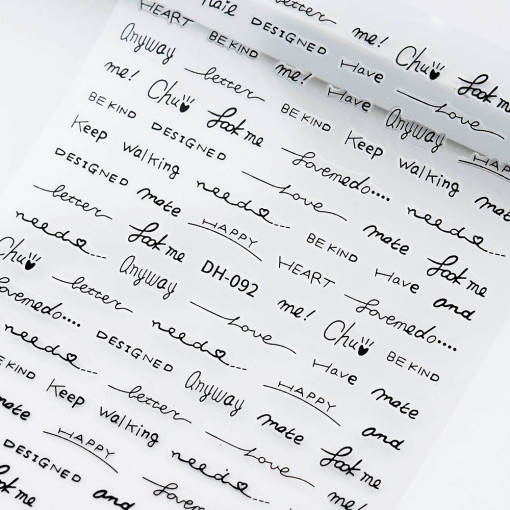 letter me! Chu look me
nail DESIGNED Have Love
HEART BE KIND me! Have Anyway HAPPY
Anyway letter BE KIND Keep walking mate
me! Chu look me Lovemedo.... need...
BE KIND DESIGNED Love mate look me
Keep walking need... BE KIND Have and
DESIGNED mate HAPPY HEART Lovemedo....
letter look me DH-092 me! Chu BE KIND
need... Anyway Love Have mate
Chu letter need... HAPPY and
Lovemedo.... DESIGNED Anyway mate look me
need... letter Love me!
BE KIND Keep walking need...
mate HAPPY Lovemedo
DESIGNED and
look me